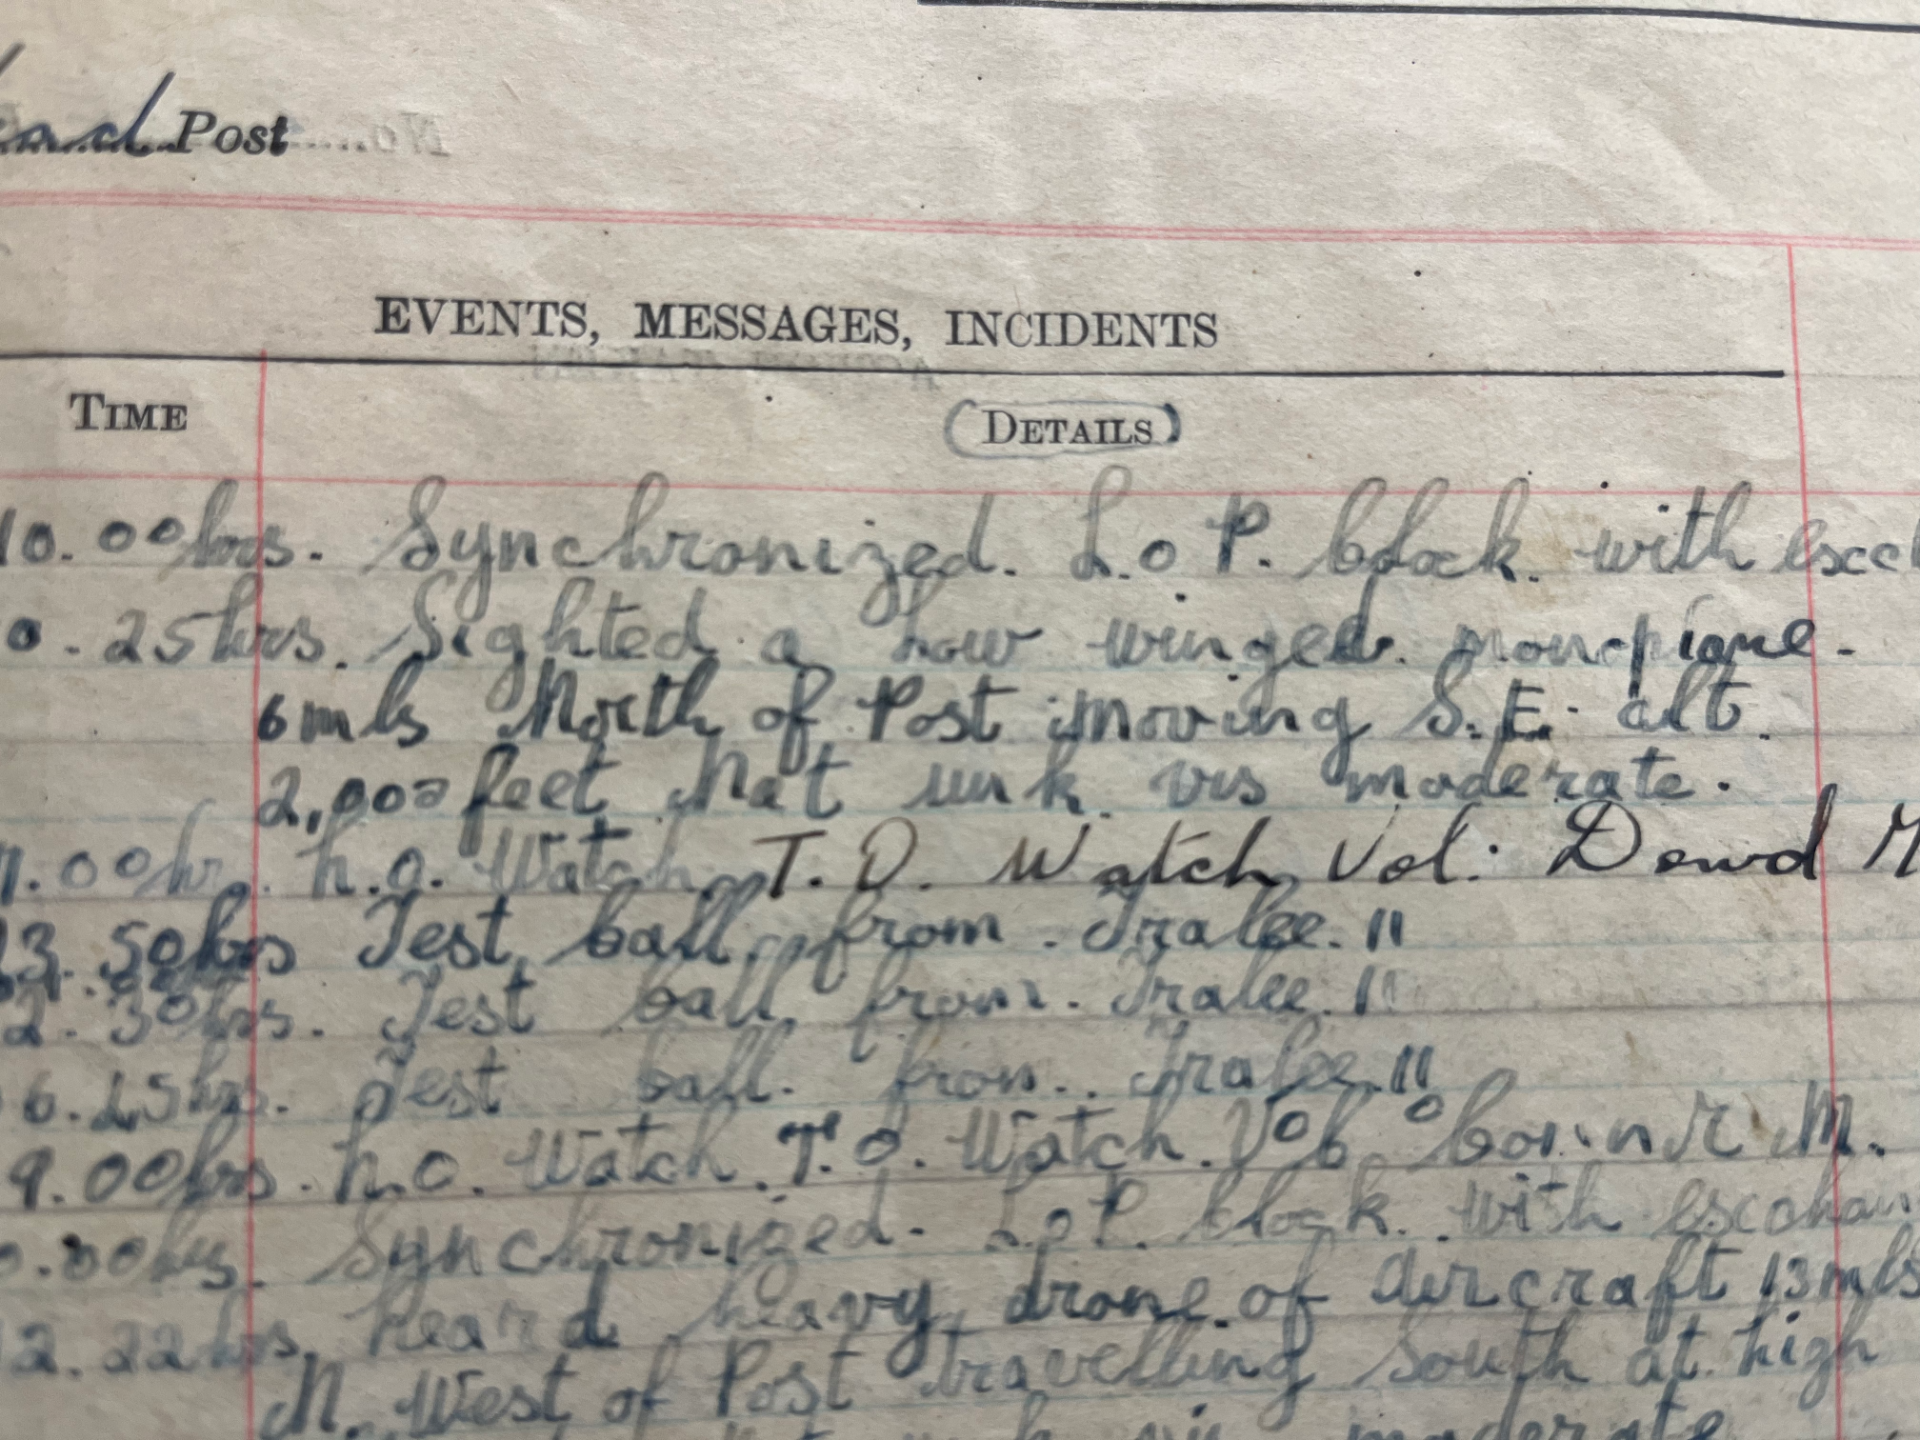 ead Post
EVENTS, MESSAGES, INCIDENTS
TIME DETAILS
10.00hrs. Synchronized. L.o P. block. with escc
0.25hrs. Sighted a low winged. monoplane.
6 mls North of Post moving S.E. alt.
2,000 feet Nat unk vis moderate.
11.00hr. h.o. Watch T.O. Watch Vol: Dowd M
13.50hrs Test ball from Tralee. 11
2.30hrs. Test ball from. Tralee. 11
6.15hrs. Test ball. from.. Tralee. 11
9.00hrs. h.o. Watch. T.O. Watch. Vol O'Connor M.
0.00hrs. Synchronized. LoP. block. with escohan
12.22hrs. heard heavy drone of Aircraft 13 mls
N. West of Post travelling South at high
moderate